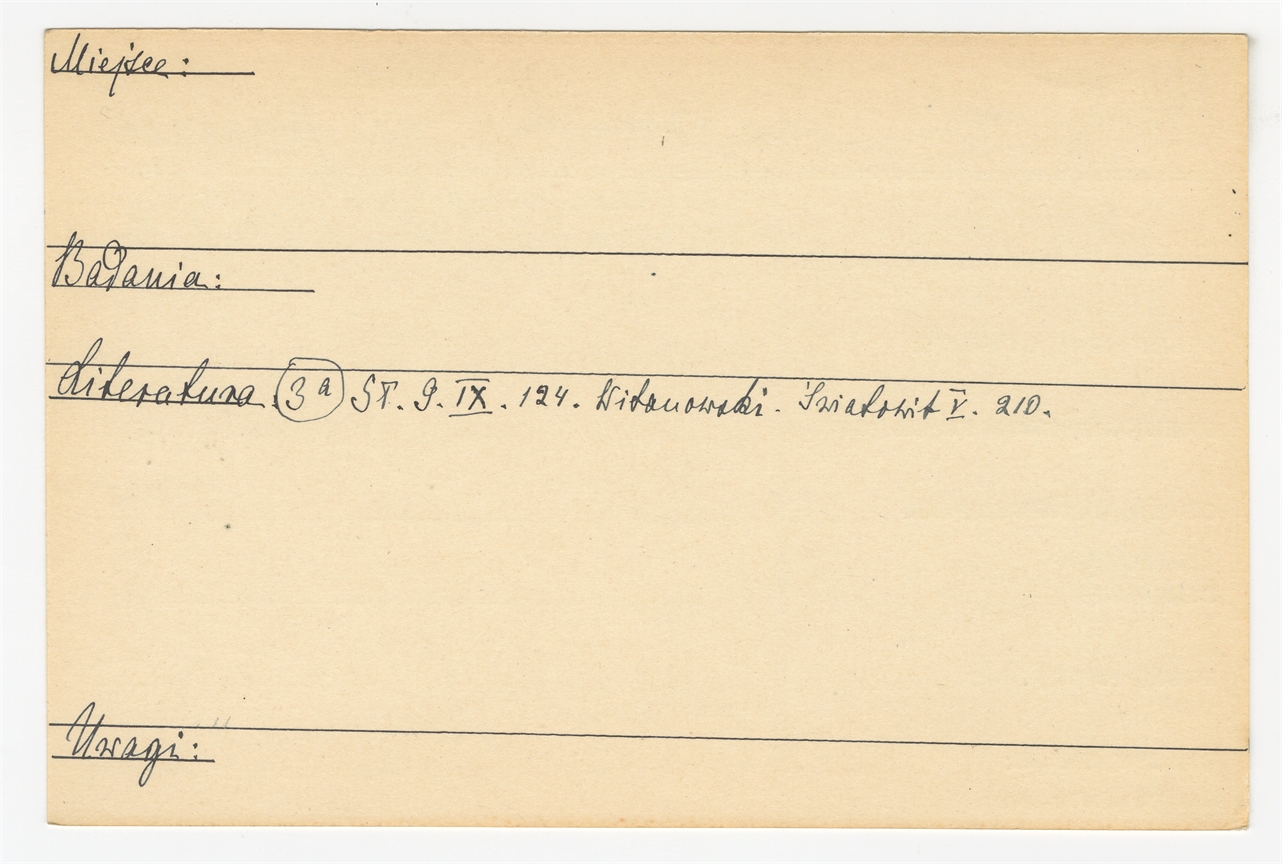 Miejsce:
Badania:
Literatura. 3a ST. G. IX. 124. Witanowski. Światowit V. 210.
Uwagi: